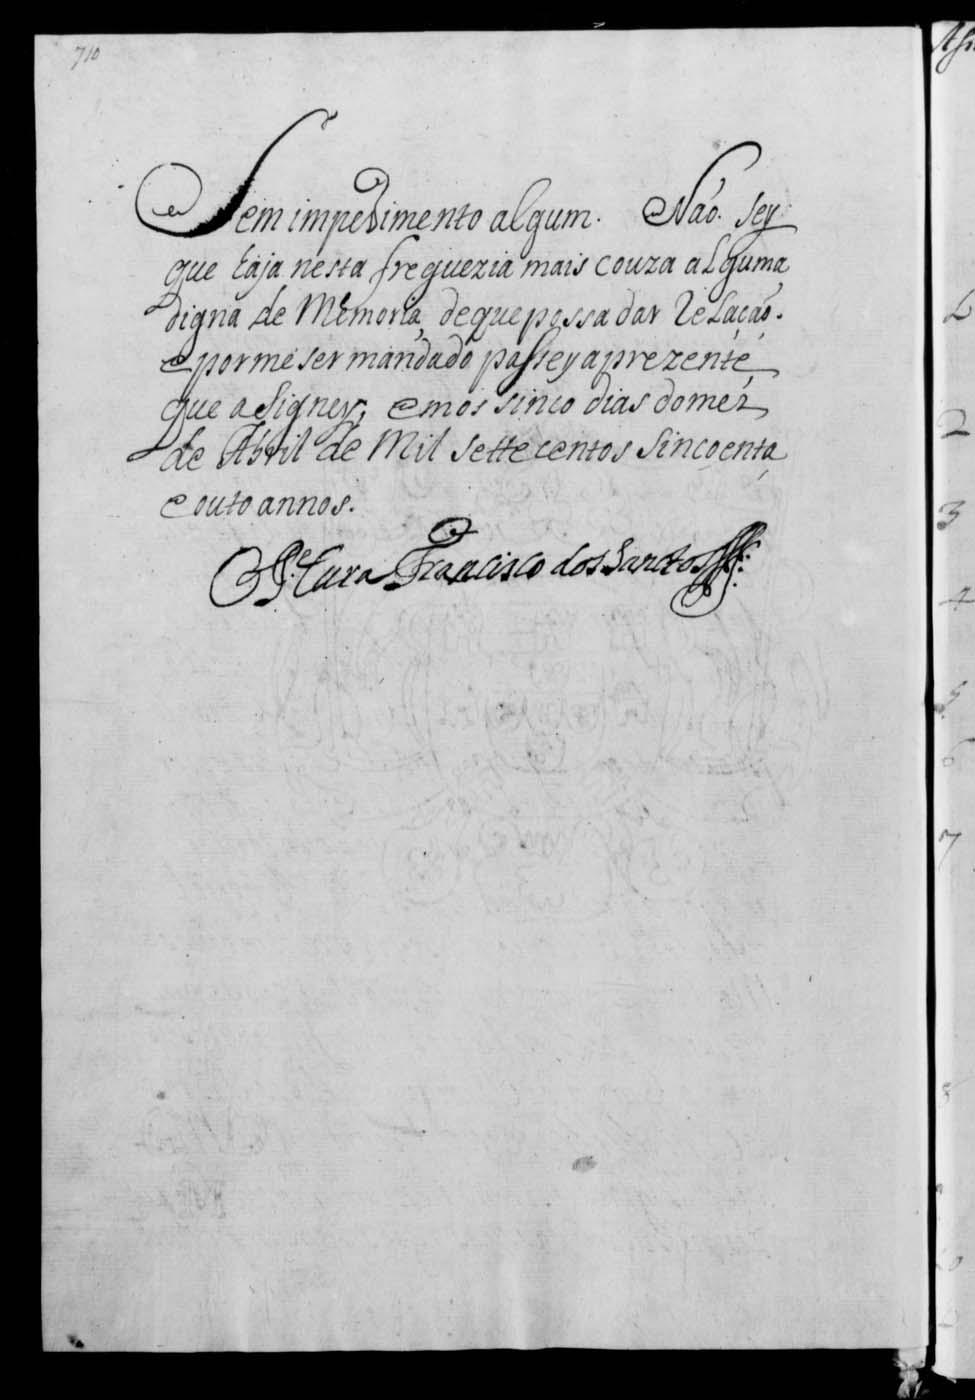 710
Sem impedimento algum. Não. sey
que haja nesta freguezia mais couza alguma
digna de Memoria, de que possa dar Relação.
e por me ser mandado passey a prezente
que asigney; emos sinco dias do mez
de Abril de Mil sette centos sincoenta
e outo annos.
O P.e Cura Francisco dos Sanctos
2
3
4
5
6
7
8